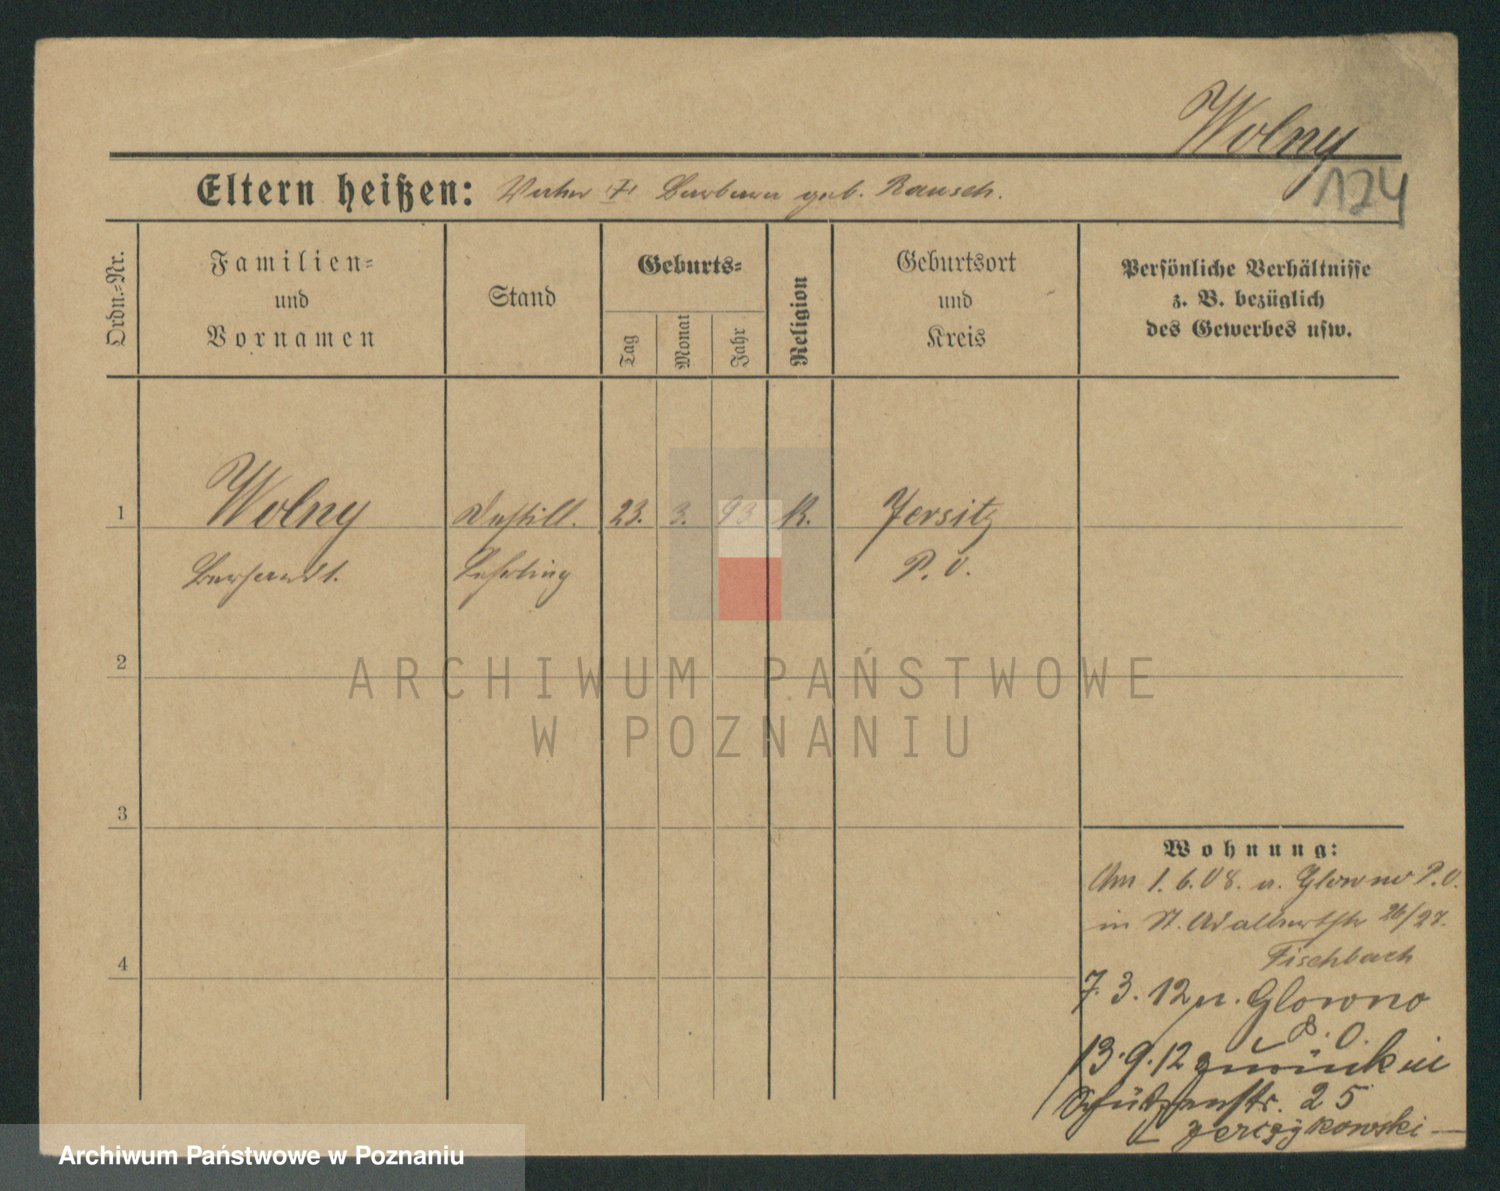 Wolny
124
Eltern heißen: Vater † Barbara geb. Rausch.
Ordn.-Nr.
Familien-
und
Vornamen
Stand
Geburts-
Tag
Monat
Jahr
Religion
Geburtsort
und
Kreis
Persönliche Verhältnisse
z. B. bezüglich
des Gewerbes usw.
1 Wolny Destill. 23. 3. 93 K. Jersitz
Lehrling P. O.
2
3
4
Wohnung:
Am 1.6.08. v. Glowno P.O.
in St. Adalbertstr 26/27.
Fischbach
7.3.12 n. Glowno
P.O.
13.9.12 zurück in
Schützenstr. 25
ARCHIWUM PAŃSTWOWE
W POZNANIU
Archiwum Państwowe w Poznaniu